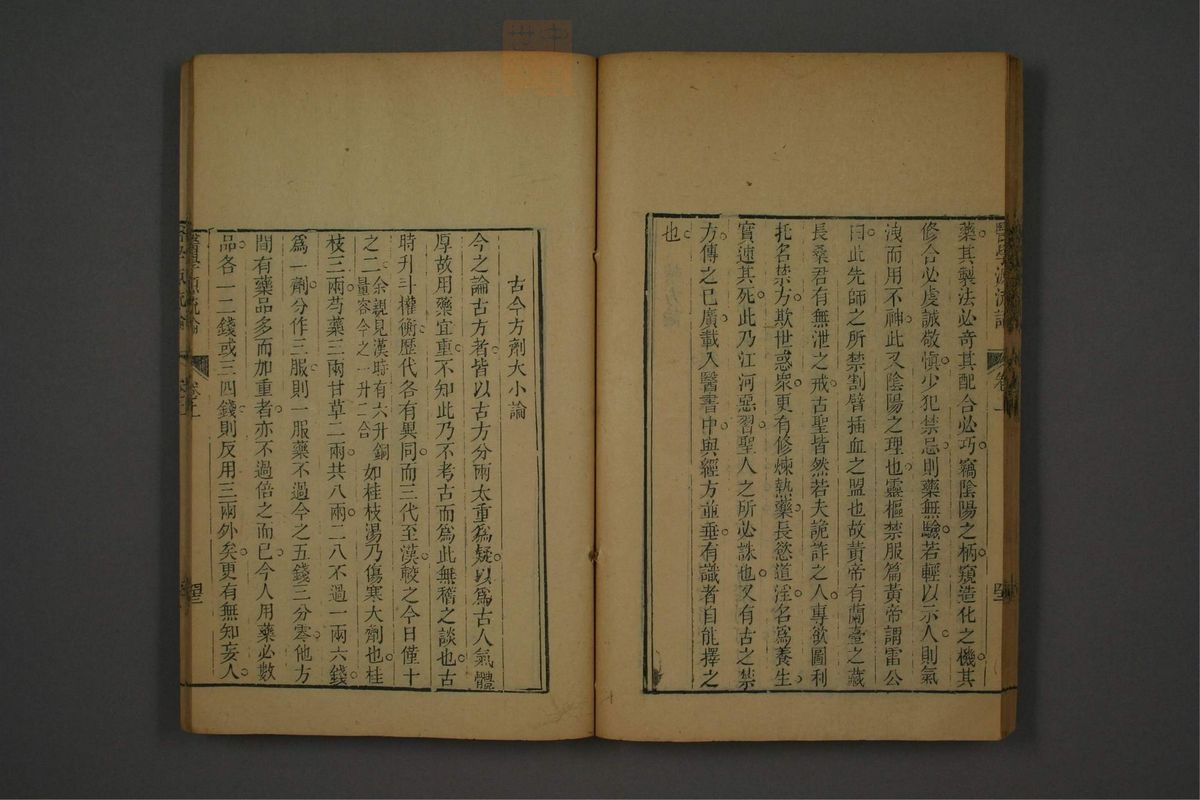 醫學源流論
卷上
藥其製法必奇其配合必巧竊陰陽之柄窺造化之機其
修合必虔誠敬愼少犯禁忌則藥無驗若輕以示人則氣
洩而用不神此又陰陽之理也靈樞禁服篇黃帝謂雷公
曰此先師之所禁割臂插血之盟也故黃帝有蘭臺之藏
長桑君有無泄之戒古聖皆然若夫詭詐之人專欲圖利
托名禁方欺世惑衆更有修煉熱藥長慾道淫名爲養生
實速其死此乃江河惡習聖人之所必誅也又有古之禁
方傳之已廣載入醫書中與經方並垂有識者自能擇之
也
古今方劑大小論
今之論古方者皆以古方分兩太重爲疑以爲古人氣體
厚故用藥宜重不知此乃不考古而爲此無稽之談也古
時升斗權衡歷代各有異同而三代至漢較之今日僅十
之二余親見漢時有六升銅量容今之一升二合如桂枝湯乃傷寒大劑也桂
枝三兩芍藥三兩甘草二兩共八兩二八不過一兩六錢
爲一劑分作三服則一服藥不過今之五錢三分零他方
間有藥品多而加重者亦不過倍之而已今人用藥必數
品各一二錢或三四錢則反用三兩外矣更有無知妄人